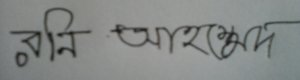 রনি আহম্মেদ